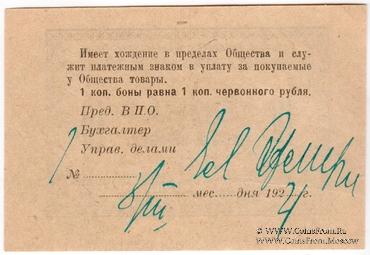 Имеет хождение в пределах Общества и слу-
жит платежным знаком в уплату за покупаемые
у Общества товары.
1 коп. боны равна 1 коп. червонного рубля.
Пред. В П.О.
Бухгалтер
Управ. делами
№
мес. дня 1924 г.
© www.CoinsFrom.Ru